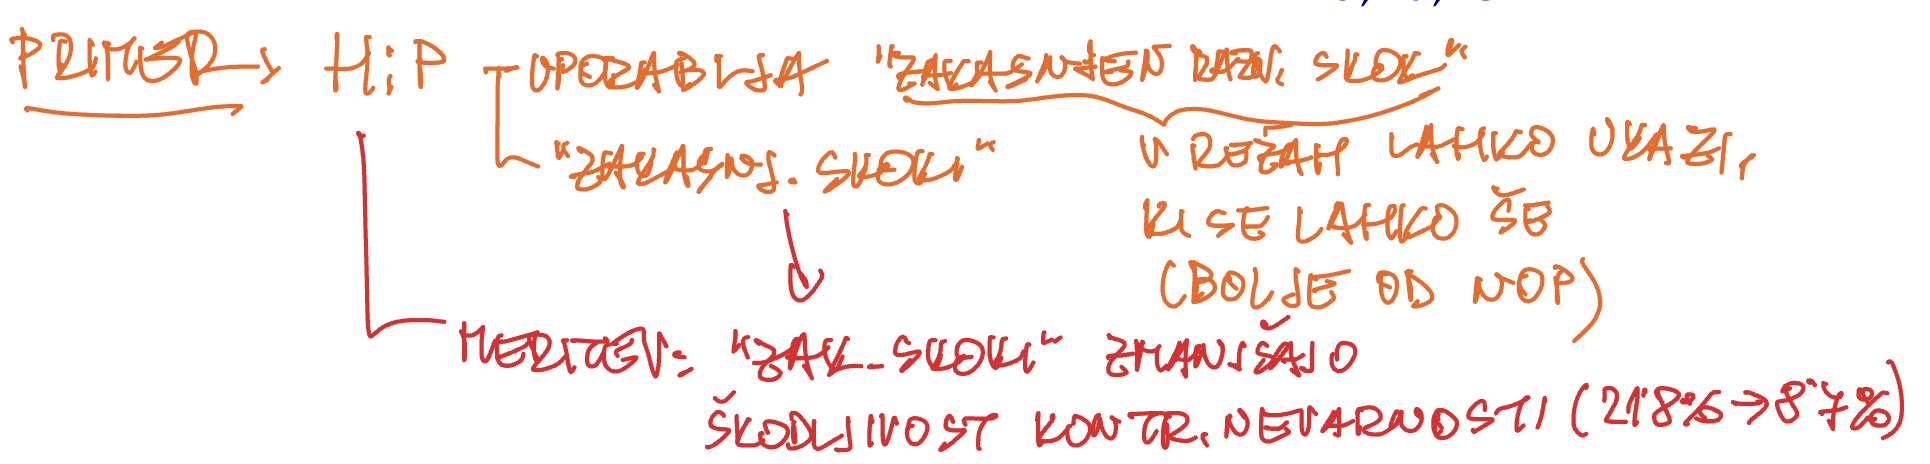 PRIMER → HiP - UPORABLJA "ZAKASNJEN RAZV. SKOK"
"ZAKASNJ. SKOKI"
V REŽAH LAHKO UKAZI,
KI SE LAHKO ŠE
(BOLJE OD NOP)
MERITEV: "ZAK. SKOKI" ZMANJŠAJO
ŠKODLJIVOST KONTR. NEVARNOSTI (21'8% → 8'7%)